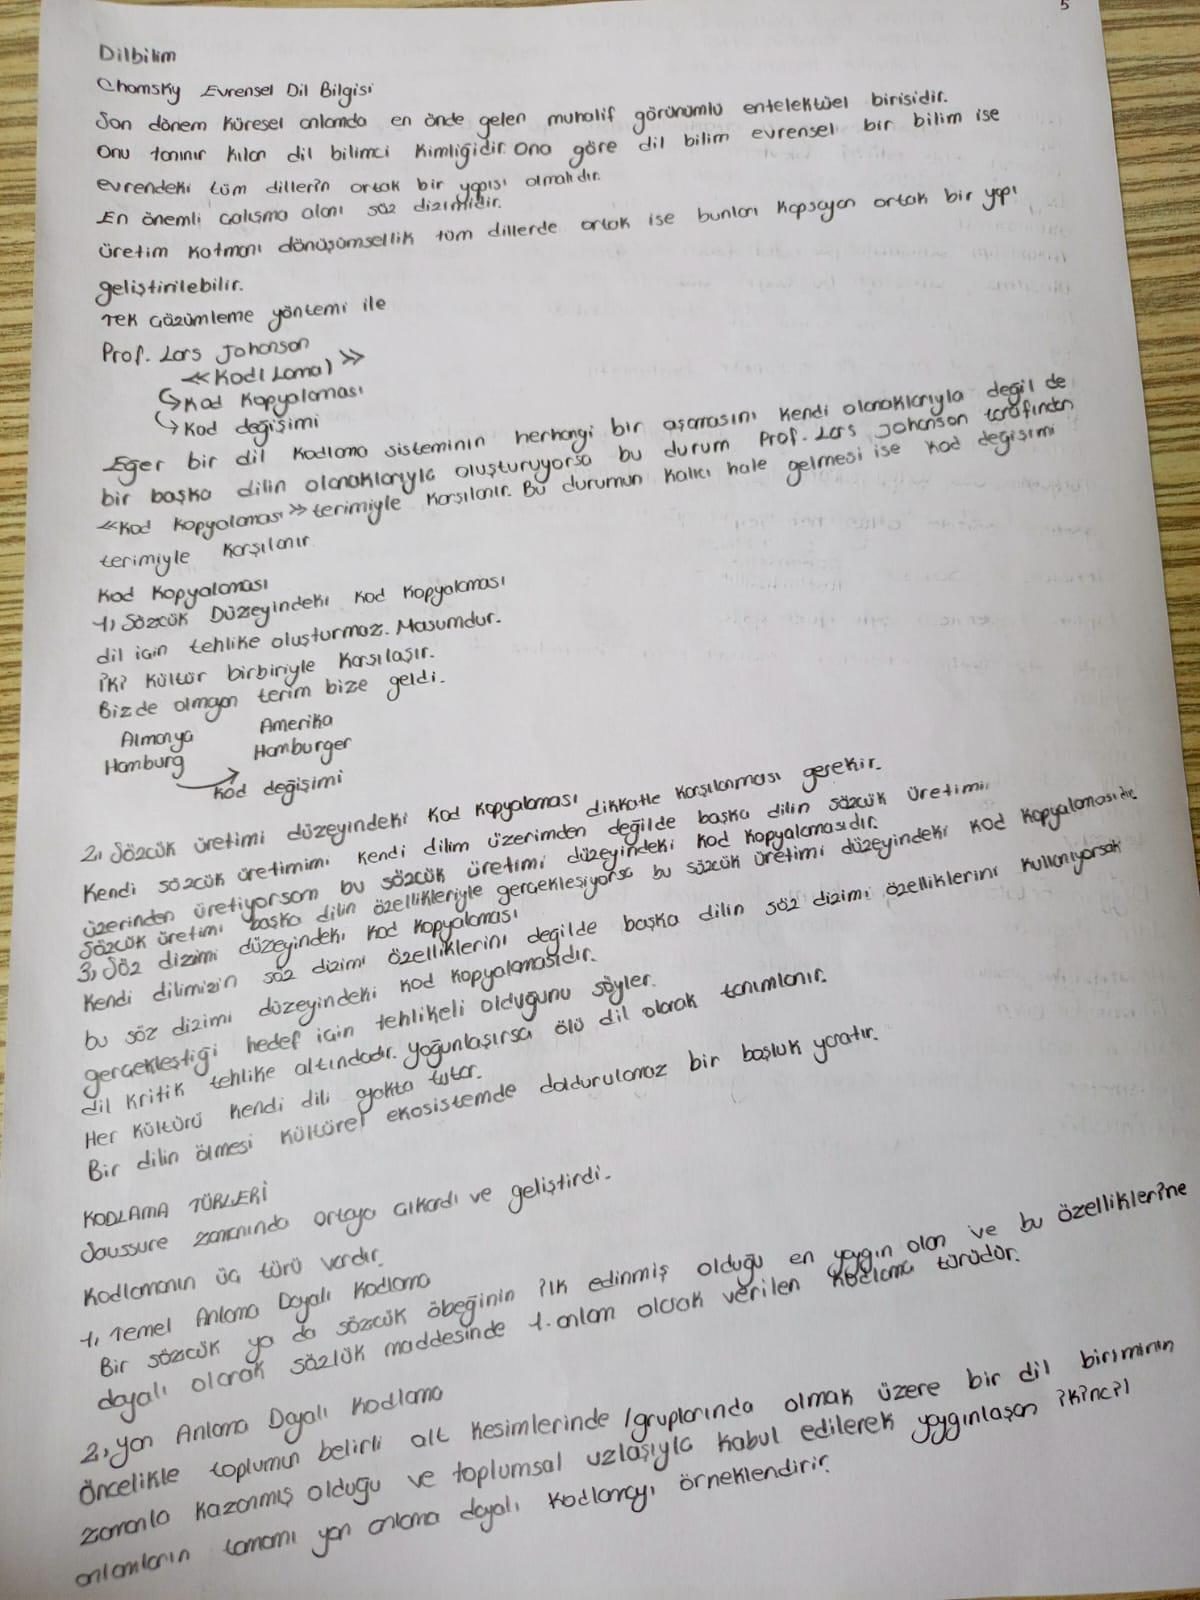 5
Dilbilim
Chomsky Evrensel Dil Bilgisi
Son dönem küresel anlamda en önde gelen muhalif görünümlü entelektüel birisidir.
Onu tanınır kılan dil bilimci kimliğidir. Ona göre dil bilim evrensel bir bilim ise
evrendeki tüm dillerin ortak bir yapısı olmalıdır.
En önemli çalışma alanı söz dizimidir.
üretim katmanı dönüşümsellik tüm dillerde ortak ise bunları kapsayan ortak bir yapı
geliştirilebilir.
Tek çözümleme yöntemi ile
Prof. Lars Johanson
≪Kod(Lama)≫
↳Kod Kopyalaması
↳Kod değişimi
Eğer bir dil kodlama sisteminin herhangi bir aşamasını kendi olanaklarıyla değil de
bir başka dilin olanaklarıyla oluşturuyorsa bu durum Prof. Lars Johanson tarafından
≪Kod Kopyalaması≫ terimiyle karşılanır. Bu durumun kalıcı hale gelmesi ise kod değişimi
terimiyle karşılanır
Kod Kopyalaması
1) Sözcük Düzeyindeki Kod Kopyalaması
dil için tehlike oluşturmaz. Masumdur.
İki kültür birbiriyle karşılaşır.
Bizde olmayan terim bize geldi.
Almanya Amerika
Hamburg → Hamburger
Kod değişimi
2) Sözcük üretimi düzeyindeki Kod Kopyalaması dikkatle karşılanması gerekir.
Kendi sözcük üretimimi kendi dilim üzerimden değilde başka dilin sözcük üretimi
üzerinden üretiyorsam bu sözcük üretimi düzeyindeki kod kopyalamasıdır.
Sözcük üretimi başka dilin özellikleriyle gerçekleşiyorsa bu sözcük üretimi düzeyindeki kod kopyalamasıdır
3) Söz dizimi düzeyindeki Kod Kopyalaması
Kendi dilimizin söz dizimi özelliklerini değilde başka dilin söz dizimi özelliklerini kullanıyorsak
bu söz dizimi düzeyindeki kod kopyalamasıdır.
gerçekleştiği hedef için tehlikeli olduğunu söyler.
dil kritik tehlike altındadır. Yoğunlaşırsa ölü dil olarak tanımlanır.
Her kültürü kendi dili ayakta tutar.
Bir dilin ölmesi kültürel ekosistemde doldurulamaz bir boşluk yaratır.
KODLAMA TÜRLERİ
Saussure zamanında ortaya çıkardı ve geliştirdi.
Kodlamanın üç türü vardır.
1) Temel Anlama Dayalı Kodlama
Bir sözcük ya da sözcük öbeğinin ilk edinmiş olduğu en yaygın olan ve bu özelliklerine
dayalı olarak sözlük maddesinde 1. anlam olarak verilen kodlama türüdür.
2) Yan Anlama Dayalı Kodlama
Öncelikle toplumun belirli alt kesimlerinde/gruplarında olmak üzere bir dil biriminin
zamanla kazanmış olduğu ve toplumsal uzlaşıyla kabul edilerek yaygınlaşan ikincil
anlamların tamamı yan anlama dayalı kodlamayı örneklendirir.